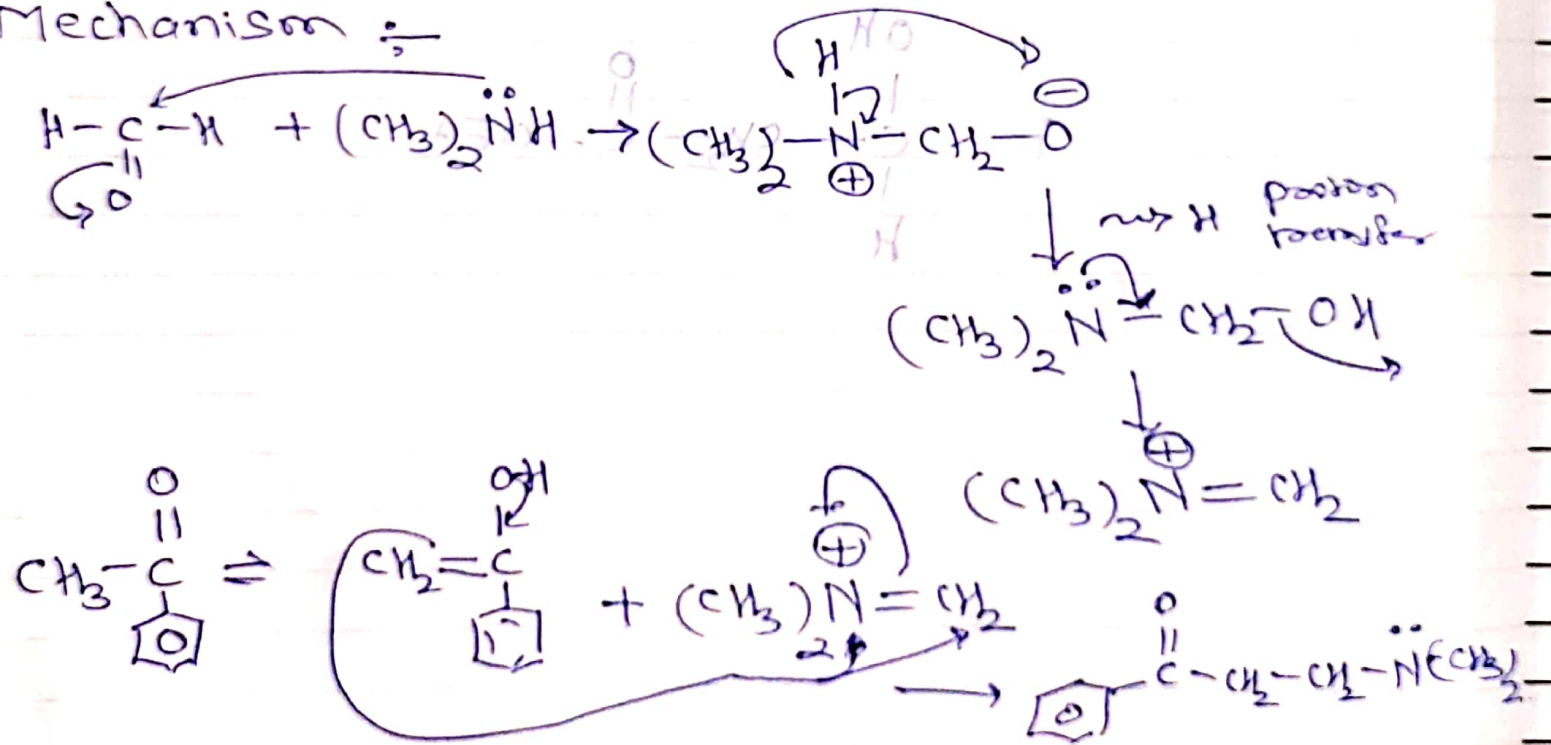 Mechanism :-
H-C-H + (CH3)2N̈H → (CH3)2-N-CH2-O
O H ⊕ ⊖
↓ ~~> H proton transfer
(CH3)2N̈-CH2-OH
↓
(CH3)2N=CH2
⊕
O OH ⊕
CH3-C ⇌ CH2=C + (CH3)2N=CH2
→ O
C-CH2-CH2-N̈(CH3)2